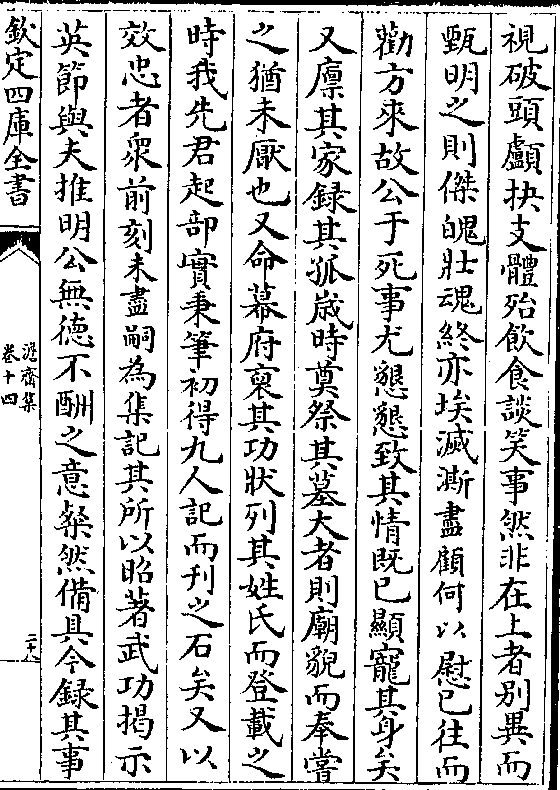 視破頭顱抉支體殆飲食談笑事然非在上者別異而
甄明之則傑魄壯魂終亦埃滅澌盡顧何以慰已往而
勸方來故公于死事尤懇懇致其情既已顯寵其身矣
又廩其家録其孤歳時奠祭其墓大者則廟貌而奉嘗
之猶未厭也又命幕府裒其功狀列其姓氏而登載之
時我先君起部實秉筆初得九人記而刋之石矣又以
效忠者衆前刻未盡嗣為集記其所以昭著武功揭示
英節與夫推明公無徳不酬之意粲然備具今録其事
欽定四庫全書
澹齋集
卷十四
二十八